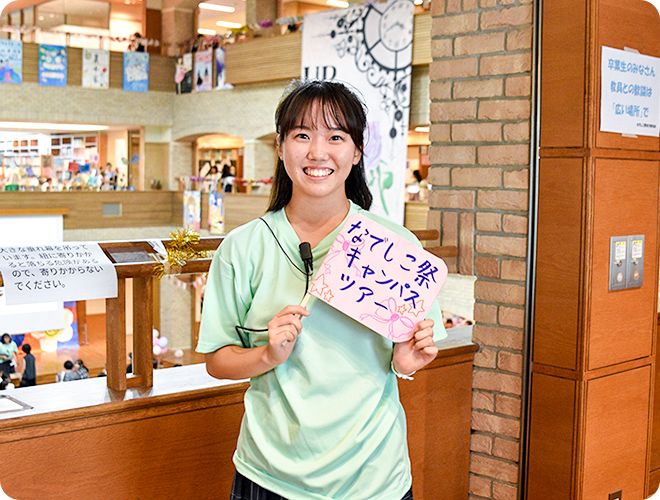 なでしこ祭
キャンパス
ツアー
卒業生のみなさん
教員との歓談は
「広い場所」で
大きな垂れ幕を吊って
います。紐に寄りかか
ると落ちる危険がある
ので、寄りかからない
でください。